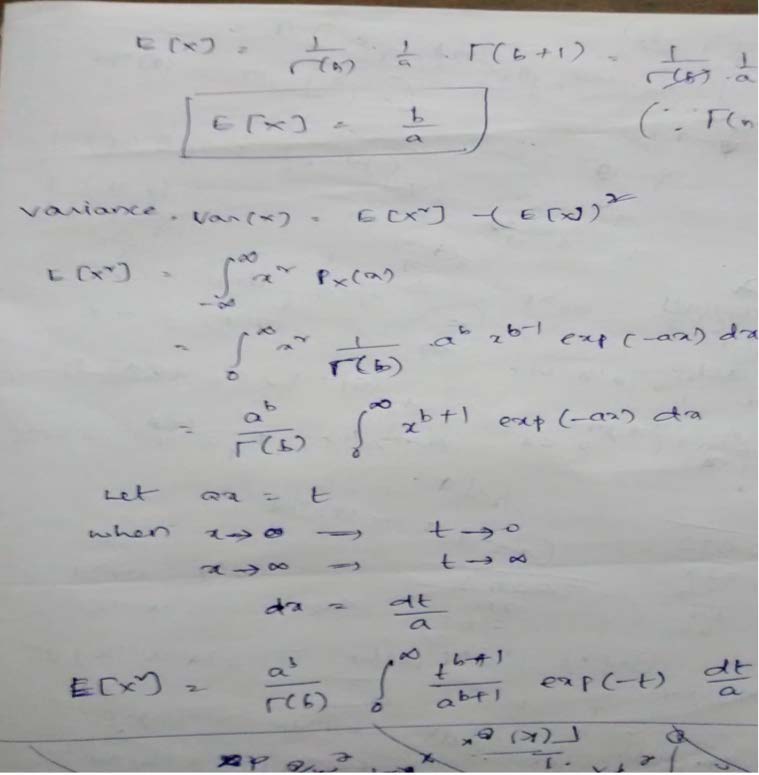 E[X] = 1/Γ(b) · 1/a · Γ(b+1) = 1/Γ(b) · 1/a
E[X] = b/a
(∵ Γ(n
variance. Var(x) = E[x²] - (E[x])²
E[x²] = ∫_{-∞}^{∞} x² Pₓ(x)
= ∫_0^∞ x² 1/Γ(b) · a^b x^{b-1} exp(-ax) dx
= a^b/Γ(b) ∫_0^∞ x^{b+1} exp(-ax) dx
Let ax = t
when x→0 ⟹ t→0
x→∞ ⟹ t→∞
dx = dt/a
E[x²] = a^b/Γ(b) ∫_0^∞ t^{b+1}/a^{b+1} exp(-t) dt/a